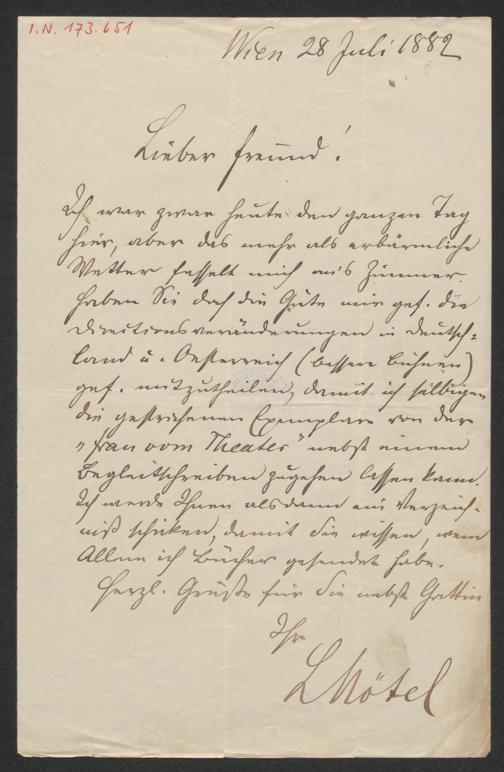 I.N. 173.651
Wien 28 Juli 1882
Lieber Freund!
Ich war zwar heute den ganzen Tag
hier, aber das mehr als erbärmliche
Wetter fesselt mich an's Zimmer.
Haben Sie doch die Güte mir gef. die
Directionsveränderungen in Deutsch=
land u. Oesterreich (bessere Bühnen)
gef. mitzutheilen, damit ich selbigen
die gestrichenen Exemplare von der
"Frau vom Theater" nebst einem
Begleitschreiben zugehen lassen kann.
Ich werde Ihnen alsdann ein Verzeich=
niß schicken, damit Sie wissen, wem
Allem ich Bücher gesendet habe.
Herzl. Grüße für Sie nebst Gattin
Ihr